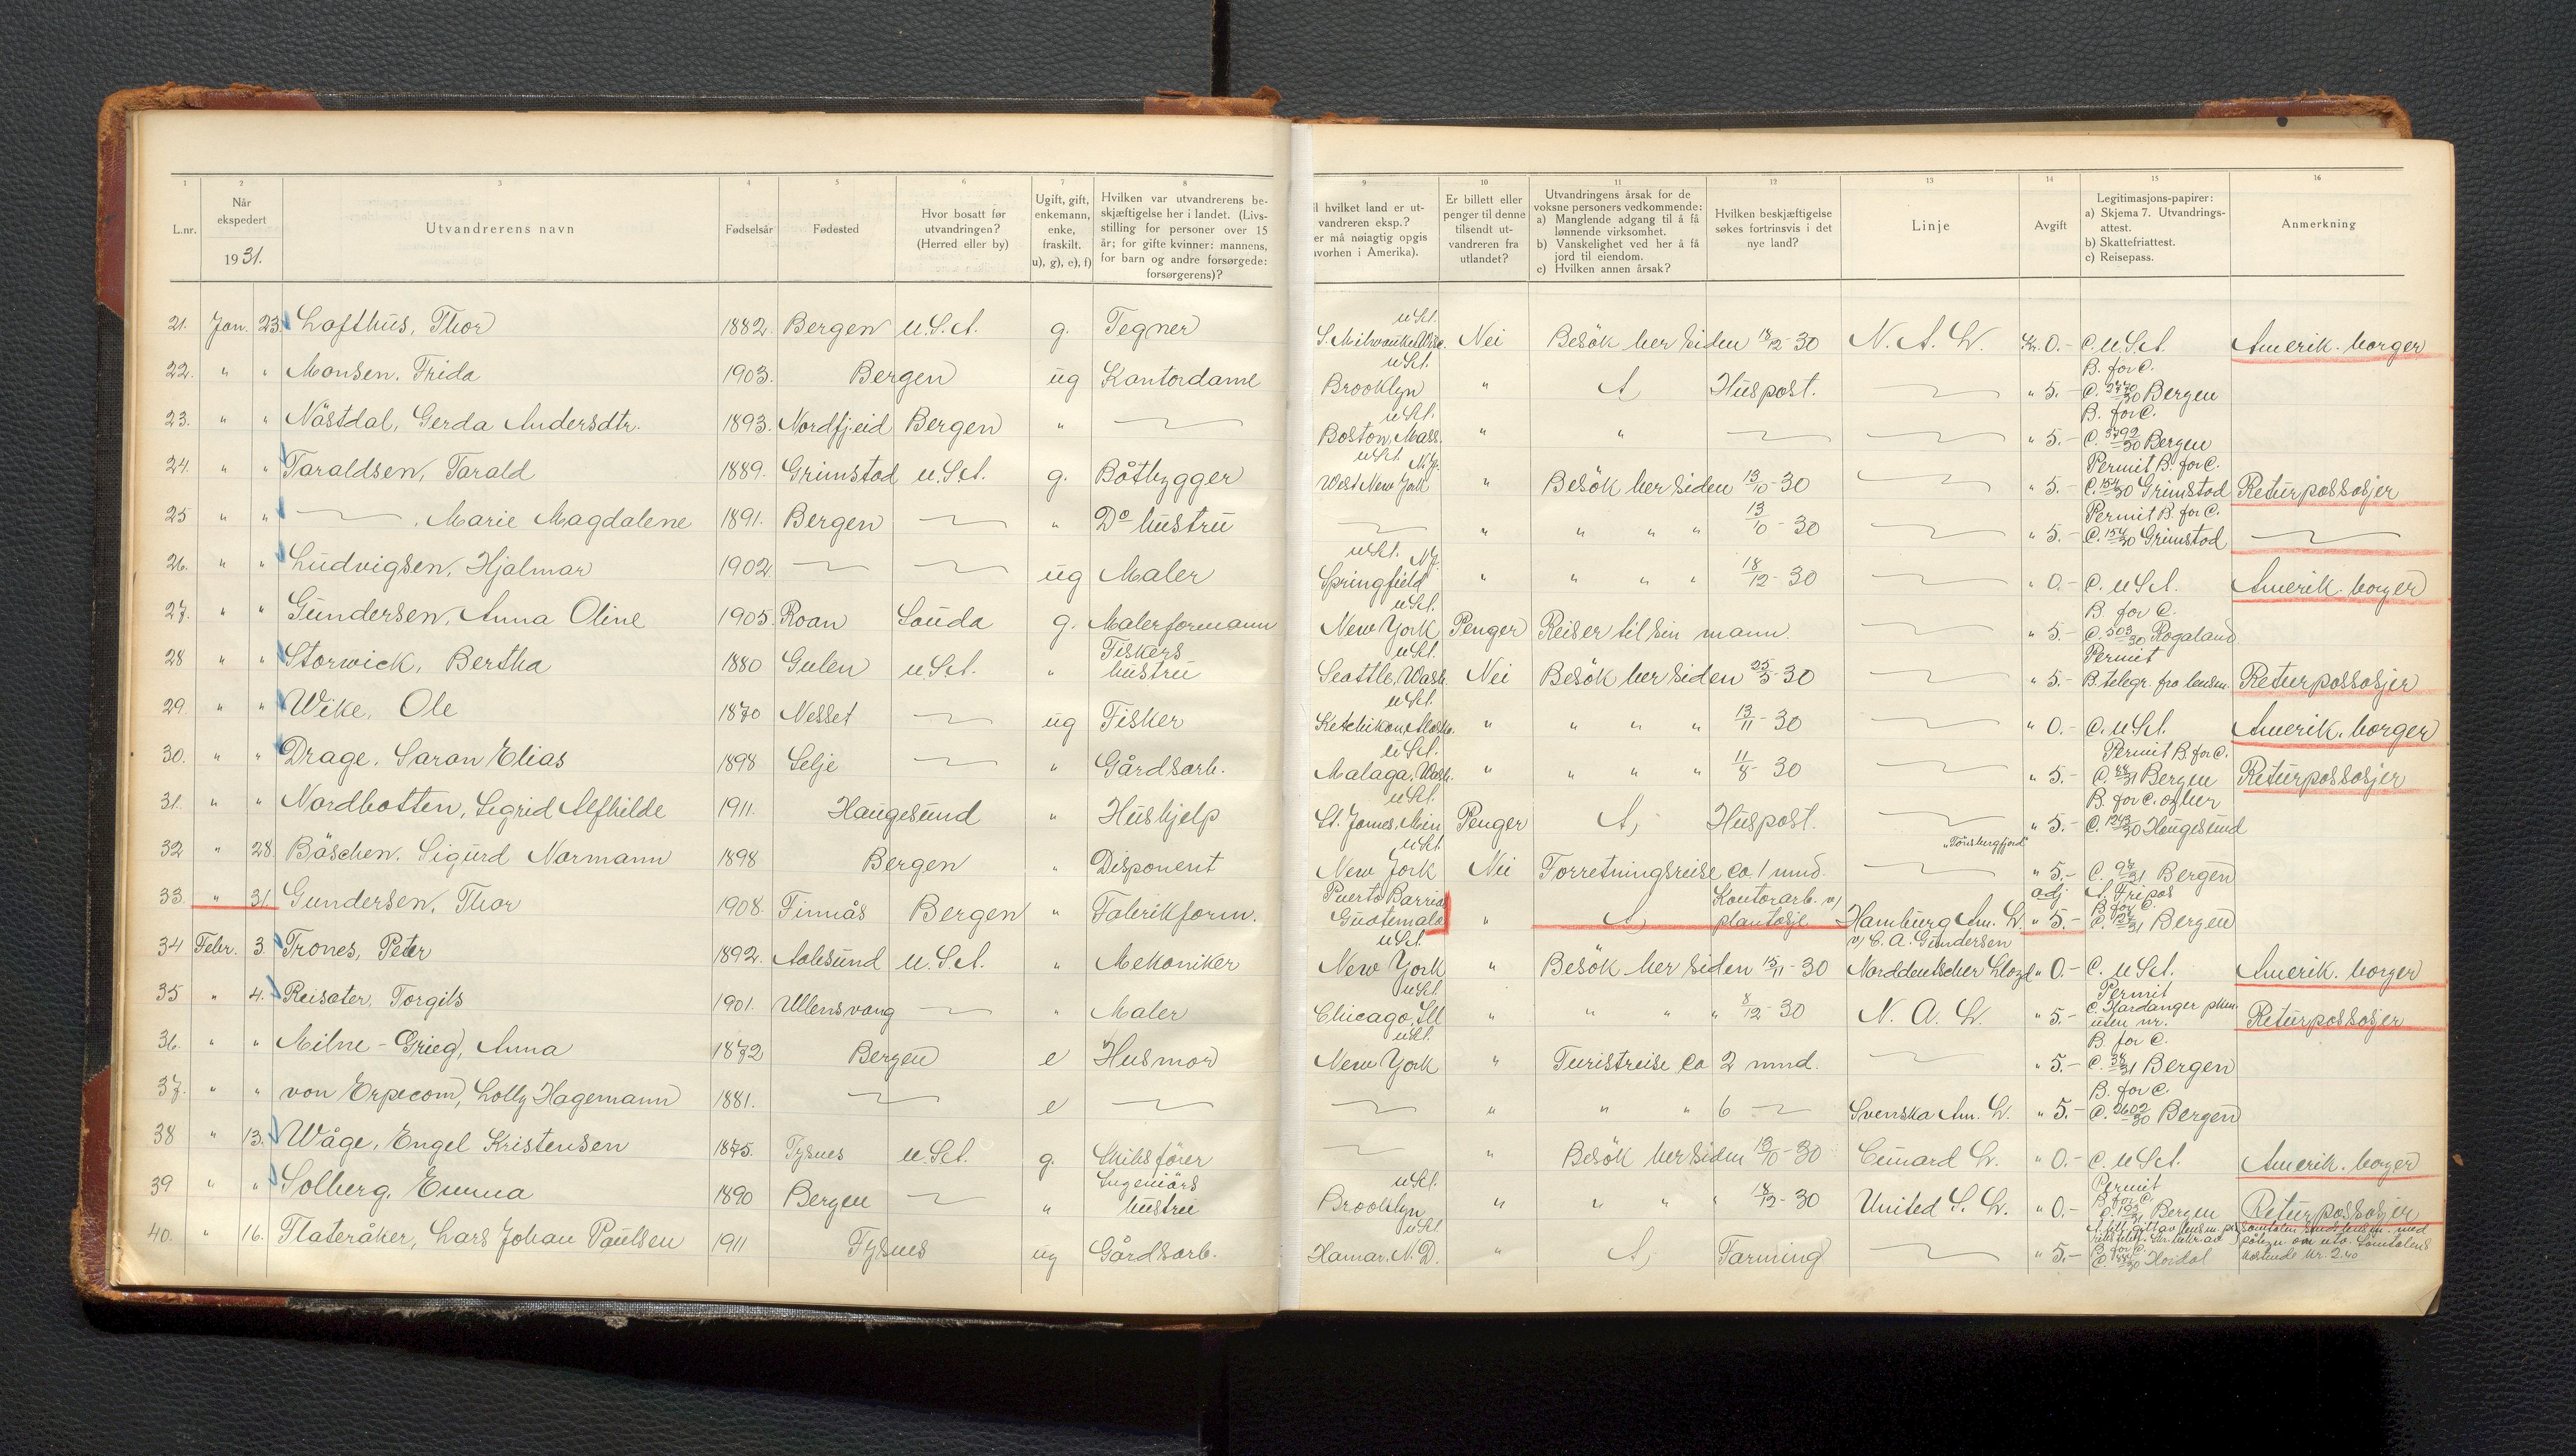 1 2 3 4 5 6 7 8 9 10 11 12 13 14 15 16
L.nr. Når ekspedert 1931. Utvandrerens navn Fødselsår Fødested Hvor bosatt før utvandringen? (Herred eller by) Ugift, gift, enkemann, enke, fraskilt. u), g), e), f) Hvilken var utvandrerens beskjæftigelse her i landet. (Livsstilling for personer over 15 år; for gifte kvinner: mannens, for barn og andre forsørgede: forsørgerens)? l hvilket land er utvandreren eksp.? er må nøiagtig opgis hvorhen i Amerika). Er billett eller penger til denne tilsendt utvandreren fra utlandet? Utvandringens årsak for de voksne personers vedkommende: a) Manglende adgang til å få lønnende virksomhet. b) Vanskelighet ved her å få jord til eiendom. c) Hvilken annen årsak? Hvilken beskjæftigelse søkes fortrinsvis i det nye land? Linje Avgift Legitimasjons-papirer: a) Skjema 7. Utvandringsattest. b) Skattefriattest. c) Reisepass. Anmerkning
21. Jan. 23. Lofthus, Thor 1882. Bergen U.S.A. g. Tegner U.S.A. S. Milwaukee Wisc. Nei Besök her siden 18/12-30 N. A. L. Kr. 0.- C. U.S.A. Amerik. borger
22. " " Monsen, Frida 1903. Bergen ug Kontordame U.S.A. Brooklyn " A Huspost. " 5.- B. for C. C. 2770/30 Bergen
23. " " Nåstdal, Gerda Andersdtr. 1893. Nordfj.eid Bergen " U.S.A. Boston, Mass. " " " 5.- B. for C. C. 3792/30 Bergen
24. " " Taraldsen, Tarald 1889. Grimstad U.S.A. g. Båtbygger U.S.A. N.J. West New York " Besök her siden 13/10-30 " 5.- Permit B. for C. C. 154/30 Grimstad Returpassasjer
25 " " , Marie Magdalene 1891. Bergen " Do hustru " " " " 13/10-30 " 5.- Permit B. for C. C. 154/30 Grimstad
26. " " Ludvigsen, Hjalmar 1902 ug Maler U.S.A. N.J. Springfield " " " " 18/12-30 " 0.- C. U.S.A. Amerik. borger
27. " " Gundersen, Anna Oline 1905. Roan Sauda g. Malerformann U.S.A. New York Penger Reiser til sin mann. " 5.- B. for C. C. 503/30 Rogaland
28 " " Storwick, Bertha 1880 Gulen U.S.A. " Fiskers hustru U.S.A. Seattle, Wash. Nei Besök her siden 25/5-30 " 5.- Permit B. telegr. fra lensm. Returpassasjer
29. " " Wike, Ole 1870 Nesset ug Fisker U.S.A. Ketchikan, Alaska. " " " " 13/11-30 " 0.- C. U.S.A. Amerik. borger
30. " " Drage, Saron Elias 1898 Selje " Gårdsarb. U.S.A. Malaga, Wash. " " " " 11/8-30 " 5.- Permit B. for C. C. 88/31 Bergen Returpassasjer
31. " " Nordbotten, Sigrid Alfhilde 1911. Haugesund " Hushjelp U.S.A. St. James, Min Penger A, Huspost. " 5.- B. for C. C. 1243/30 Haugesund
32 " 28 Båschen, Sigurd Normann 1898 Bergen " Disponent U.S.A. New York Nei Forretningsreise ca. 1 mnd. "Tönsbergfjord" " 5.- C. 97/31 Bergen
33. " 31. Gundersen, Thor 1908. Finnås Bergen " Fabrikform. Puerto Barrios Guatemala " A, Kontorarb. v/ plantasje Hamburg Am. L. v/ C. A. Gundersen adj. " 5.- A. Fripas B. for C. C. 127/31 Bergen
34 Febr. 3 Trones, Peter 1892. Aalesund U.S.A. " Mekaniker U.S.A. New York " Besök her siden 15/11-30 Norddeutscher Lloyd " 0.- C. U.S.A. Amerik. borger
35 " 4. Reisæter, Torgils 1901. Ullensvang " Maler U.S.A. Chicago, Ill " " " " 8/12-30 N. A. L. " 5.- Permit C. Hardanger uten nr. Returpassasjer
36. " " Milne-Grieg, Anna 1872 Bergen e Husmor U.S.A. New York " Turistreise ca 2 mnd. " 5.- B. for C. C. 38/31 Bergen
37. " " von Erpecom, Lolly Hagemann 1881. e " " " 6 Svenska Am. L. " 5.- B. for C. C. 2602/30 Bergen
38 " 13. Wåge, Engel Kristensen 1875. Tysnes U.S.A. g. Skibsförer " Besök her siden 13/10-30 Cunard L. " 0.- C. U.S.A. Amerik. borger
39 " " Solberg, Emma 1890 Bergen " Ingeniörs hustru U.S.A. Brooklyn " " " " 18/12-30 United S. L. " 0.- Permit B. for C. Bergen Returpassasjer
40. " 16. Flateråker, Lars Johan Paulsen 1911 Tysnes ug Gårdsarb. U.S.A. Hamar, N.D. " A, Farming " 5.- B. for C. Hordal kostende kr. 2.40